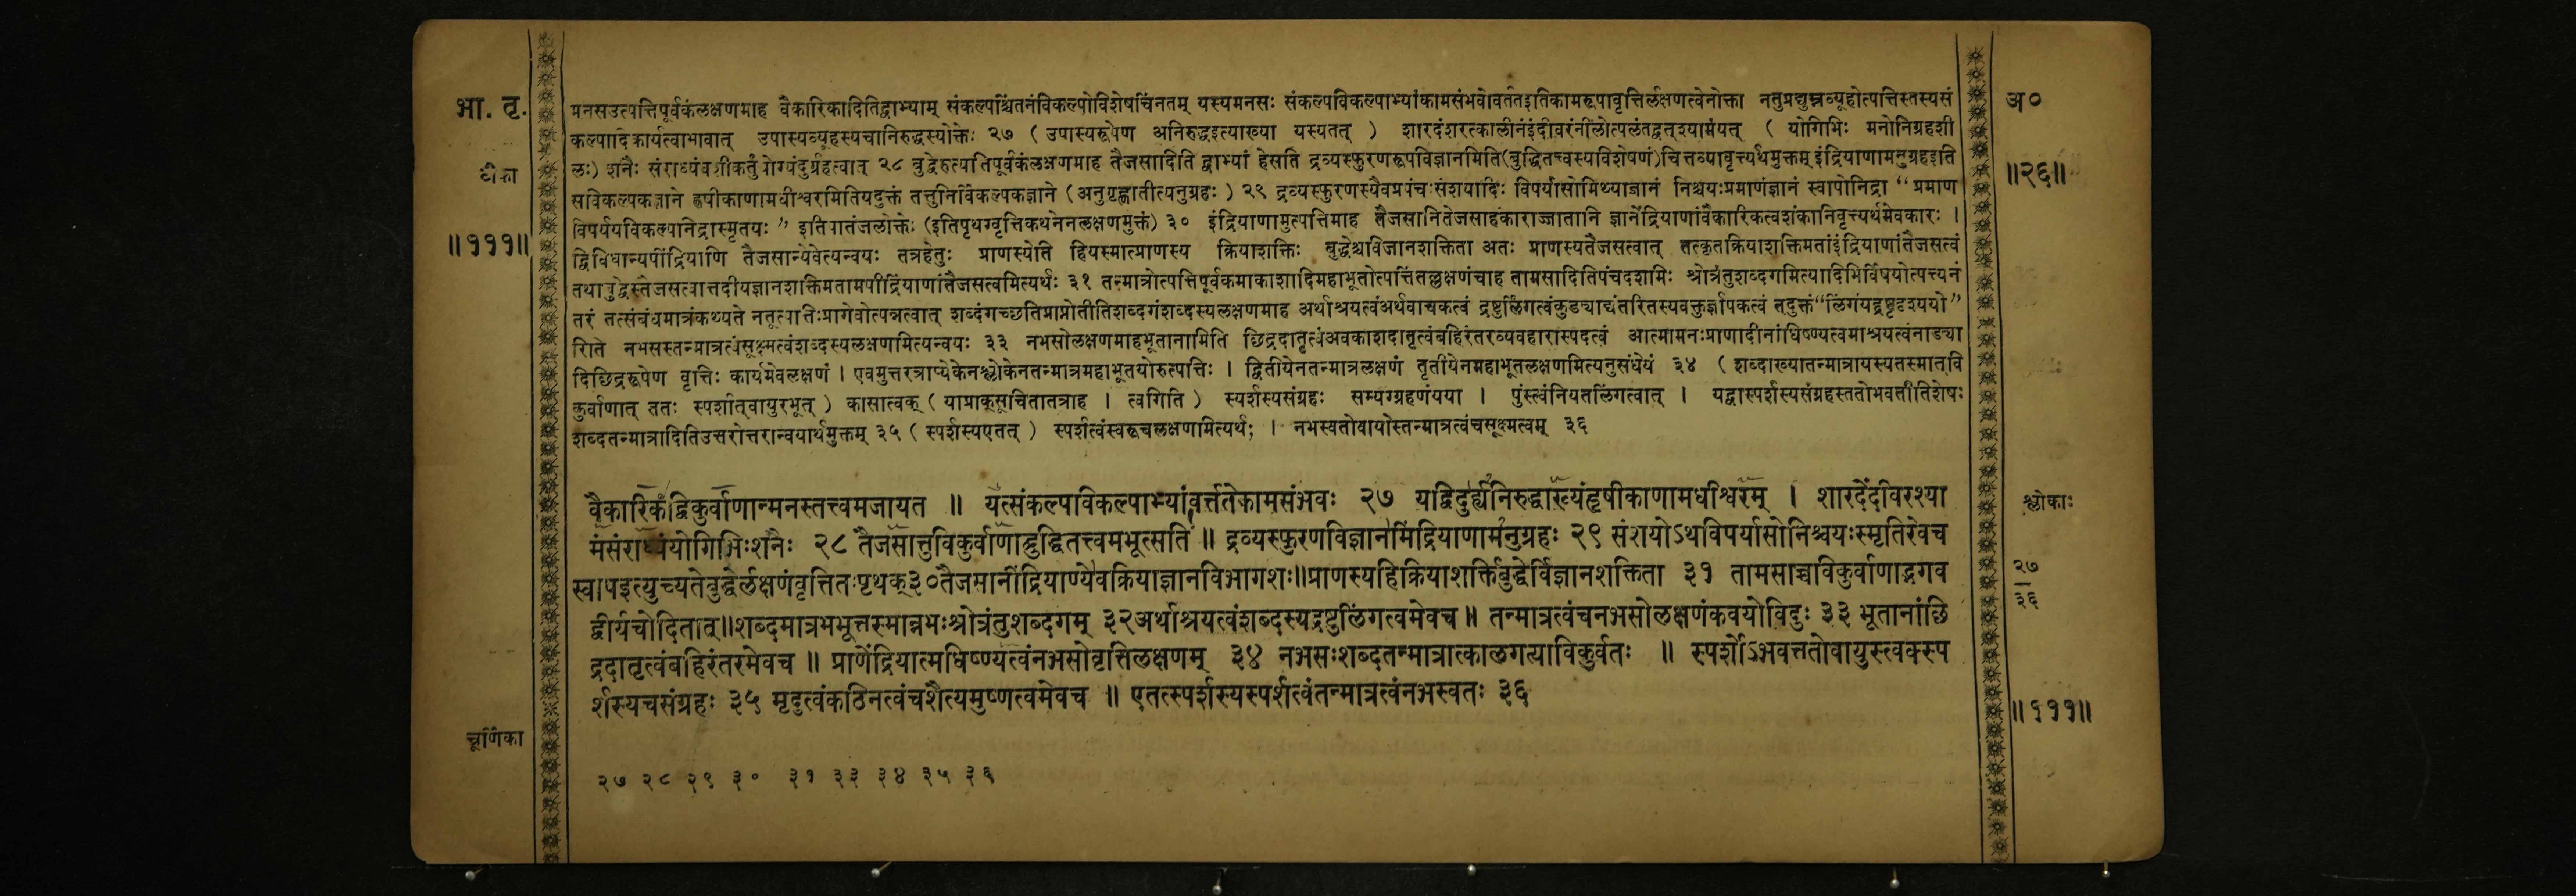 भा. तृ.
टीका
॥१११॥
अ०
॥२६॥
मनसउत्पत्तिपूर्वकंलक्षणमाह वैकारिकादितिद्वाभ्याम् संकल्पश्चिंतनंविकल्पोविशेषचिंनतम् यस्यमनसः संकल्पविकल्पाभ्यांकामसंभवोवर्ततइतिकामरूपावृत्तिर्लक्षणत्वेनोक्ता नतुप्रद्युम्नव्यूहोत्पत्तिस्तस्यसं
कल्पादिकार्यत्वाभावात् उपास्यव्यूहस्यचानिरुद्धस्योक्तेः २७ ( उपास्यरूपेण अनिरुद्धइत्याख्या यस्यतत् ) शारदंशरत्कालीनंइंदीवरंनीलोत्पलंतद्वत्श्यामंयत् ( योगिभिः मनोनिग्रहशी
लः) शनैः संराध्यंवशीकर्तुंयोग्यंदुर्ग्रहत्वात् २८ बुद्वेरुत्पत्तिपूर्वकंलक्षणमाह तैजसादिति द्वाभ्यां हेसति द्रव्यस्फुरणरूपविज्ञानमिति(बुद्धितत्त्वस्यविशेषणं)चित्तव्यावृत्त्यर्थमुक्तम् इंद्रियाणामनुग्रहइति
सविकल्पकज्ञाने हृषीकाणामधीश्वरमितियदुक्तं तत्तुनिर्विकल्पकज्ञाने (अनुगृह्णातीत्यनुग्रहः ) २९ द्रव्यस्फुरणस्यैवप्रपंचःसंशयादिः विपर्यासोमिथ्याज्ञानं निश्चयःप्रमाणंज्ञानं स्वापोनिद्रा “ प्रमाण
विपर्ययविकल्पनिद्रास्मृतयः ” इतिपातंजलोक्तेः (इतिपृथग्वृत्तिकथनेनलक्षणमुक्तं) ३० इंद्रियाणामुत्पत्तिमाह तैजसानितेजसाहंकाराज्जातानि ज्ञानेंद्रियाणांवैकारिकत्वशंकानिवृत्त्यर्थमेवकारः ।
द्विविधान्यपींद्रियाणि तैजसान्येवेत्यन्वयः तत्रहेतुः प्राणस्येति हियस्मात्प्राणस्य क्रियाशक्तिः बुद्धेश्चविज्ञानशक्तिता अतः प्राणस्यतैजसत्वात् तत्कृतक्रियाशक्तिमतांइंद्रियाणांतैजसत्वं
तथाबुद्धेस्तैजसत्वात्तदीयज्ञानशक्तिमतामपींद्रियाणांतैजसत्वमित्यर्थः ३१ तन्मात्रोत्पत्तिपूर्वकमाकाशादिमहाभूतोत्पत्तिंतल्लक्षणंचाह तामसादितिपंचदशाभिः श्रोत्रंतुशब्दगमित्यादिभिर्विषयोत्पत्त्यनं
तरं तत्संबंधमात्रंकथ्यते नतूत्पत्तिःप्रागेवोत्पन्नत्वात् शब्दंगच्छतिप्राप्नोतीतिशब्दगंशब्दस्यलक्षणमाह अर्थाश्रयत्वंअर्थवाचकत्वं द्रष्टुर्लिंगत्वंकुड्याद्यंतरितस्यवक्तुर्ज्ञापकत्वं तदुक्तं“लिंगंयद्द्रष्टृदृश्ययो”
रिति नभसस्तन्मात्रत्वंसूक्ष्मत्वंशब्दस्यलक्षणमित्यन्वयः ३३ नभसोलक्षणमाहभूतानामिति छिद्रदातृत्वंअवकाशदातृत्वंबहिरंतरव्यवहारास्पदत्वं आत्मामनःप्राणादीनांधिष्ण्यत्वमाश्रयत्वंनाड्या
दिछिद्ररूपेण वृत्तिः कार्यमेवलक्षणं । एवमुत्तरत्राप्येकेनश्लोकेनतन्मात्रमहाभूतयोरुत्पत्तिः । द्वितीयेनतन्मात्रलक्षणं तृतीयेनमहाभूतलक्षणमित्यनुसंधेयं ३४ ( शब्दाख्यातन्मात्रायस्यतस्मात्वि
कुर्वाणात् ततः स्पर्शात्वायुरभूत् ) कासात्वक् ( याप्राक्सूचितातत्राह । त्वगिति ) स्पर्शस्यसंग्रहः सम्यग्ग्रहणंयया । पुंस्त्वंनियतलिंगत्वात् । यद्वास्पर्शस्यसंग्रहस्ततोभवतीतिशेषः
शब्दतन्मात्रादितिउत्तरोत्तरान्वयार्थमुक्तम् ३५ ( स्पर्शस्यएतत् ) स्पर्शत्वंस्वरूचलक्षणमित्यर्थः । नभस्वतोवायोस्तन्मात्रत्वंचसूक्ष्मत्वम् ३६
वैकारिकाद्विकुर्वाणान्मनस्तत्त्वमजायत ॥ यत्संकल्पविकल्पाभ्यांवर्त्ततेकामसंभवः २७ यद्विदुर्ह्यनिरुद्धाख्यंहृषीकाणामधीश्वरम् । शारदेंदीवरश्या
मंसंराध्यंयोगिभिःशनैः २८ तैजसात्तुविकुर्वाणाद्बुद्धितत्त्वमभूत्सति ॥ द्रव्यस्फुरणविज्ञानमिंद्रियाणामनुग्रहः २९ संशयोऽथविपर्यासोनिश्चयःस्मृतिरेवच
स्वापइत्युच्यतेबुद्धेर्लक्षणंवृत्तितःपृथक्३०तैजसानींद्रियाण्येवक्रियाज्ञानविभागशः॥प्राणस्यहिक्रियाशक्तिर्बुद्धेर्विज्ञानशक्तिता ३१ तामसाच्चविकुर्वाणाद्भगव
द्वीर्यचोदितात्॥शब्दमात्रमभूत्तस्मान्नभःश्रोत्रंतुशब्दगम् ३२अर्थाश्रयत्वंशब्दस्यद्रष्टुर्लिंगत्वमेवच॥ तन्मात्रत्वंचनभसोलक्षणंकवयोविदुः ३३ भूतानांछि
द्रदातृत्वंबहिरंतरमेवच ॥ प्राणेंद्रियात्मधिष्ण्यत्वंनभसोवृत्तिलक्षणम् ३४ नभसःशब्दतन्मात्रात्कालगत्याविकुर्वतः ॥ स्पर्शोऽभवत्ततोवायुस्त्वक्स्प
र्शस्यचसंग्रहः ३५ मृदुत्वंकठिनत्वंचशैत्यमुष्णत्वमेवच ॥ एतत्स्पर्शस्यस्पर्शत्वंतन्मात्रत्वंनभस्वतः ३६
श्लोकाः
२७
३६
॥१११॥
चूर्णिका
२७ २८ २९ ३० ३१ ३३ ३४ ३५ ३६